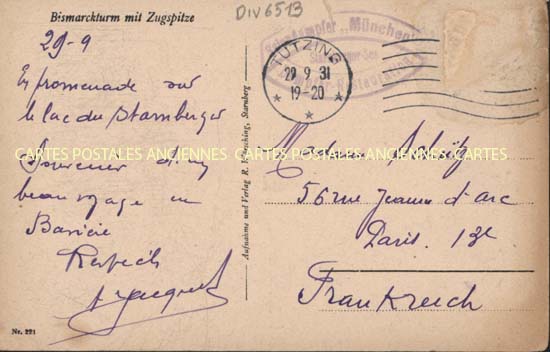 Bismarckturm mit Zugspitze
DIV 6513
29-9
En promenade sur
le lac du Starnberger
Souvenir d'un
beau voyage en
Bavière
Respect.
Salondampfer „München"
Starnberger-See
TUTZING
29 9 31
19-20
Madame
56 rue Jeanne d'arc
Paris. 13e
Frankreich
Aufnahme und Verlag R. Wörsching, Starnberg
CARTES POSTALES ANCIENNES CARTES POSTALES ANCIENNES CARTES
Nr. 221